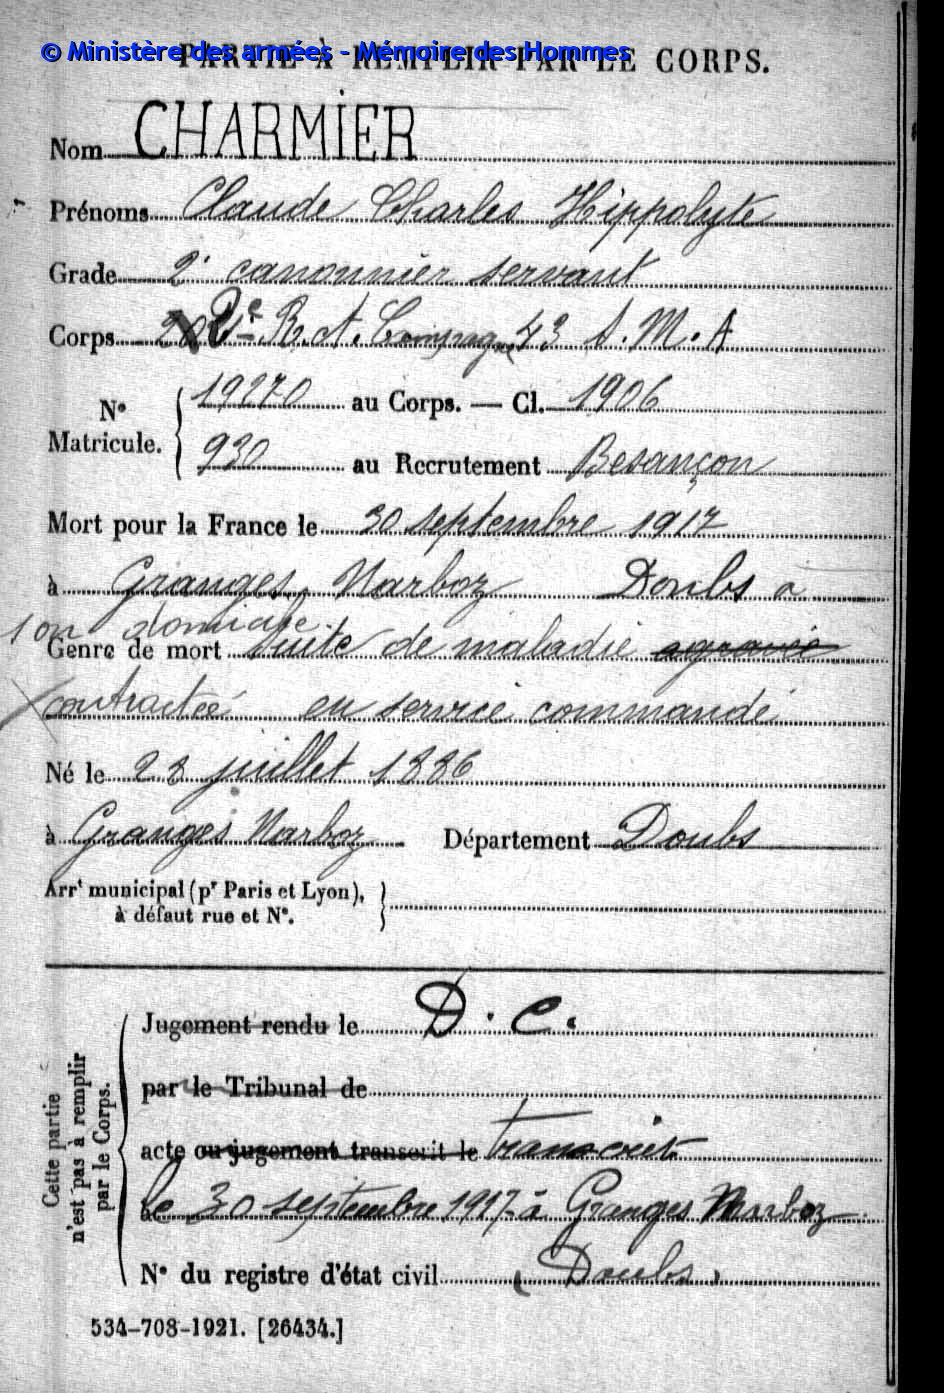 © Ministère des armées - Mémoire des Hommes
PARTIE À REMPLIR PAR LE CORPS.
Nom CHARMIER
Prénoms Claude Charles Hippolyte
Grade 2e canonnier servant
Corps R. A. 43 S. M. A
N° Matricule. 19270 au Corps. — Cl. 1906
930 au Recrutement Besançon
Mort pour la France le 30 septembre 1917
à Granges Narboz Doubs a
son domicile.
Genre de mort suite de maladie agravée
contractée en service commandé
Né le 28 juillet 1886
à Granges Narboz Département Doubs
Arrt municipal (pr Paris et Lyon),
à défaut rue et N°.
Cette partie
n'est pas à remplir
par le Corps.
Jugement rendu le D. C.
par le Tribunal de
acte ou jugement transcrit le transcrit
le 30 septembre 1917 à Granges Narboz
N° du registre d'état civil (Doubs)
534-708-1921. [26434.]